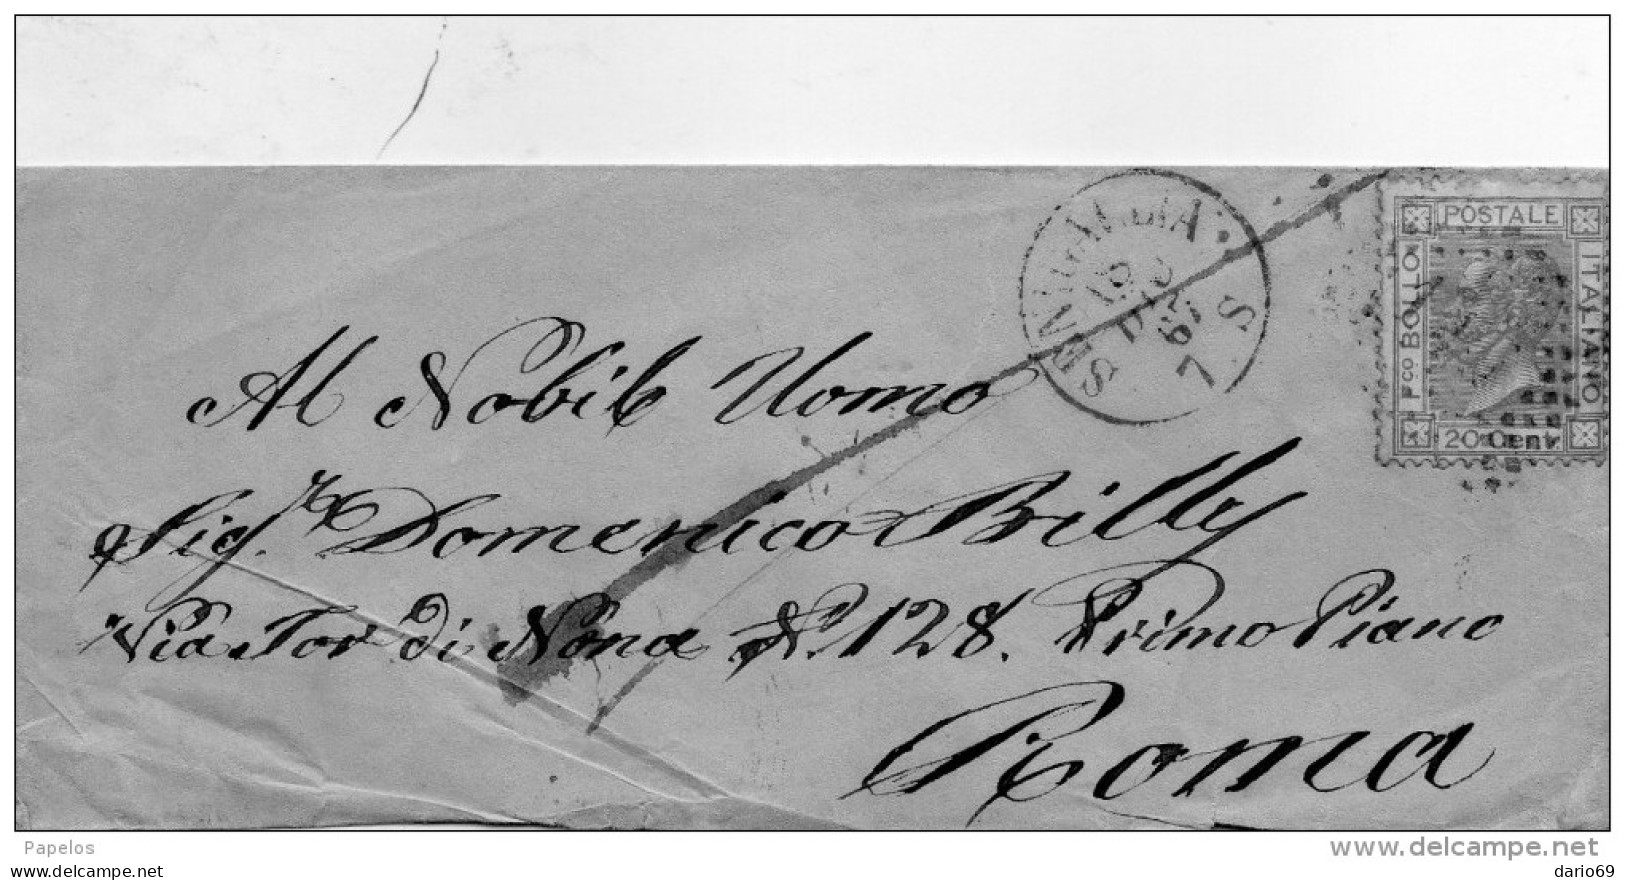 POSTALE
ITALIANO
Fco BOLLO
20 Cent.
SENIGALLIA
DIC
67
7 S
Al Nobile Uomo
Sig.r Domenico Brilly
Via Tor di Nona N. 128. Primo Piano
Roma
Papelos
www.delcampe.net
dario69